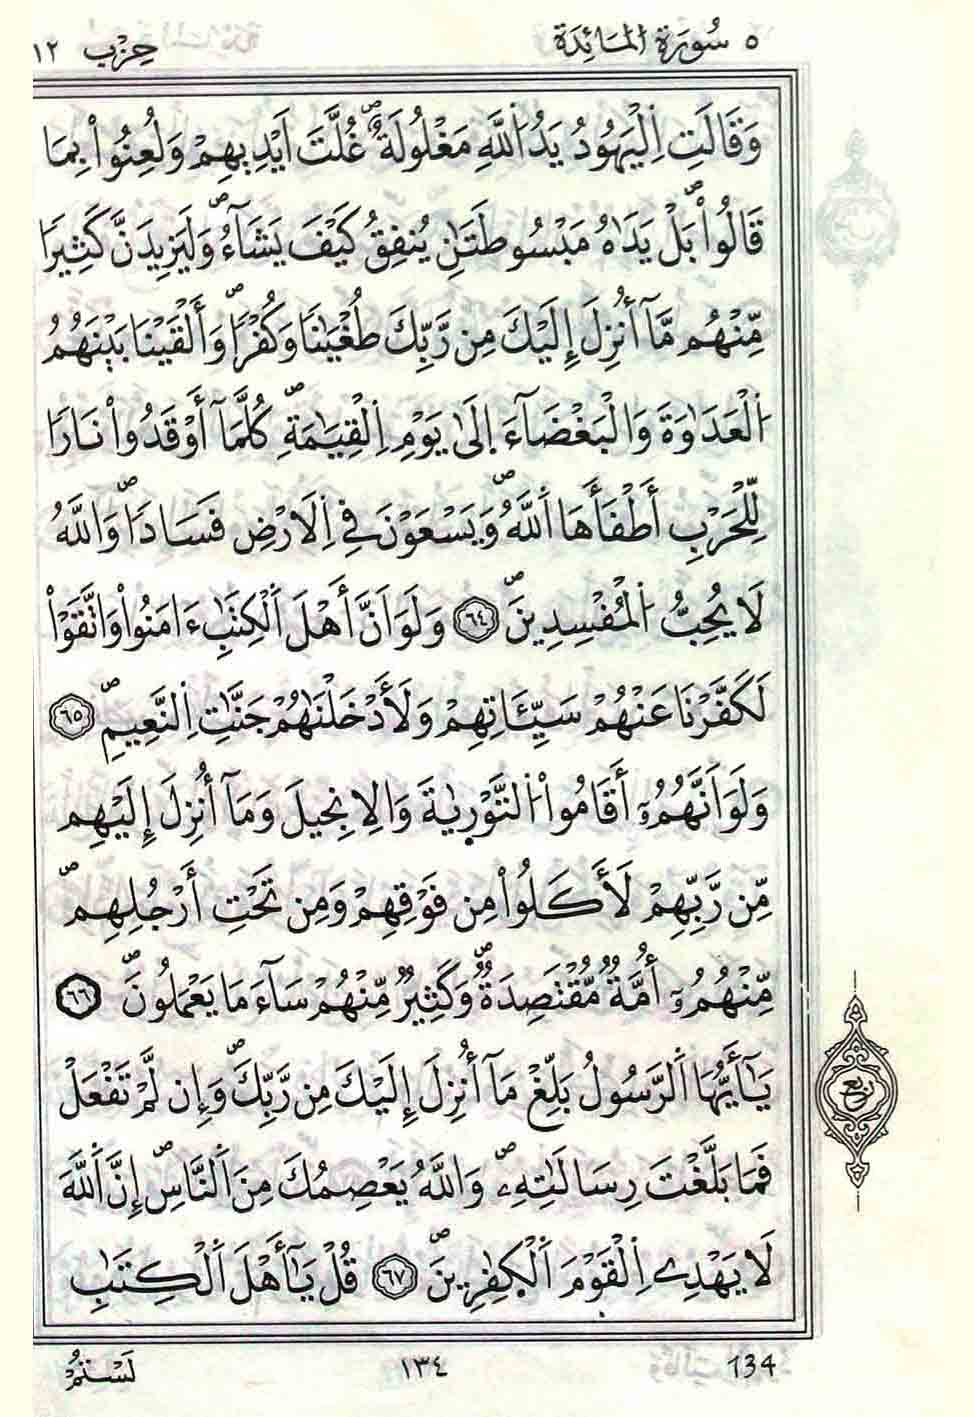 ٥ سُورَةُ الْمَائِدَةِ حِزْب ١٢
وَقَالَتِ اِ۬لْيَهُودُ يَدُ اُ۬للَّهِ مَغْلُولَةٌۖ غُلَّتَ اَيْدِيهِمْ وَلُعِنُواْ بِمَا
قَالُواْۖ بَلْ يَدَٰهُ مَبْسُوطَتَٰنِ يُنفِقُ كَيْفَ يَشَآءُۖ وَلَيَزِيدَنَّ كَثِيرًا
مِّنْهُم مَّآ أُنزِلَ إِلَيْكَ مِن رَّبِّكَ طُغْيَٰنًا وَكُفْرًاۖ وَأَلْقَيْنَا بَيْنَهُمُ
اُ۬لْعَدَٰوَةَ وَالْبَغْضَآءَ إِلَىٰ يَوْمِ اِ۬لْقِيَٰمَةِۖ كُلَّمَآ أَوْقَدُواْ نَارًا
لِّلْحَرْبِ أَطْفَأَهَا اَ۬للَّهُۖ وَيَسْعَوْنَ فِي اِ۬لَارْضِ فَسَادًاۖ وَاللَّهُ
لَا يُحِبُّ اُ۬لْمُفْسِدِينَۖ ٦٤ وَلَوَ اَنَّ أَهْلَ اَ۬لْكِتَٰبِ ءَامَنُواْ وَاتَّقَوْاْ
لَكَفَّرْنَا عَنْهُمْ سَيِّـَٔاتِهِمْ وَلَأَدْخَلْنَٰهُمْ جَنَّٰتِ اِ۬لنَّعِيمِۖ ٦٥
وَلَوَ اَنَّهُمُۥٓ أَقَامُواْ اُ۬لتَّوْرِيٰةَ وَالِانجِيلَ وَمَآ أُنزِلَ إِلَيْهِم
مِّن رَّبِّهِمْ لَأَكَلُواْ مِن فَوْقِهِمْ وَمِن تَحْتِ أَرْجُلِهِمۖ
مِّنْهُمُۥٓ أُمَّةٞ مُّقْتَصِدَةٞۖ وَكَثِيرٞ مِّنْهُمْ سَآءَ مَا يَعْمَلُونَۖ ٦٦
يَٰٓأَيُّهَا اَ۬لرَّسُولُ بَلِّغْ مَآ أُنزِلَ إِلَيْكَ مِن رَّبِّكَۖ وَإِن لَّمْ تَفْعَلْ
فَمَا بَلَّغْتَ رِسَالَٰتِهِۦۖ وَاللَّهُ يَعْصِمُكَ مِنَ اَ۬لنَّاسِۖ إِنَّ اَ۬للَّهَ
رُبُع
لَا يَهْدِے اِ۬لْقَوْمَ اَ۬لْكٰ۪فِرِينَۖ ٦٧ قُلْ يَٰٓأَهْلَ اَ۬لْكِتَٰبِ
134 ١٣٤ لَسْتُمْ